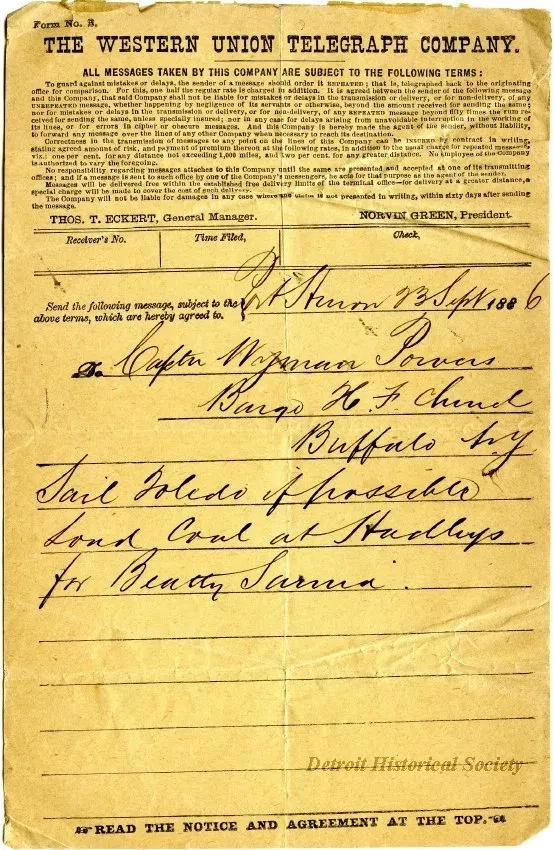 Form No. 2.
THE WESTERN UNION TELEGRAPH COMPANY.
ALL MESSAGES TAKEN BY THIS COMPANY ARE SUBJECT TO THE FOLLOWING TERMS:
To guard against mistakes or delays, the sender of a message should order it REPEATED; that is, telegraphed back to the originating
office for comparison. For this, one half the regular rate is charged in addition. It is agreed between the sender of the following message
and this Company, that said Company shall not be liable for mistakes or delays in the transmission or delivery, or for non-delivery, of any
UNREPEATED message, whether happening by negligence of its servants or otherwise, beyond the amount received for sending the same;
nor for mistakes or delays in the transmission or delivery, or for non-delivery, of any REPEATED message beyond fifty times the sum re-
ceived for sending the same, unless specially insured; nor in any case for delays arising from unavoidable interruption in the working of
its lines, or for errors in cipher or obscure messages. And this Company is hereby made the agent of the sender, without liability,
to forward any message over the lines of any other Company when necessary to reach its destination.
Correctness in the transmission of messages to any point on the lines of this Company can be INSURED by contract in writing,
stating agreed amount of risk, and payment of premium thereon at the following rates, in addition to the usual charge for repeated messages,
viz.: one per cent. for any distance not exceeding 1,000 miles, and two per cent. for any greater distance. No employee of the Company
is authorized to vary the foregoing.
No responsibility regarding messages attaches to this Company until the same are presented and accepted at one of its transmitting
offices; and if a message is sent to such office by one of the Company's messengers, he acts for that purpose as the agent of the sender.
Messages will be delivered free within the established free delivery limits of the terminal office—for delivery at a greater distance, a
special charge will be made to cover the cost of such delivery.
The Company will not be liable for damages in any case where the claim is not presented in writing, within sixty days after sending
the message.
THOS. T. ECKERT, General Manager. NORVIN GREEN, President.
Receiver's No. Time Filed, Check,
Send the following message, subject to the
above terms, which are hereby agreed to.
Pt Huron 23 Sept 1886
To Captn Wyman Powers
Barge H. F. Church
Buffalo N.Y
Sail Toledo if possible
Load Coal at Hadleys
for Beatty Sarnia.
Detroit Historical Society
READ THE NOTICE AND AGREEMENT AT THE TOP.